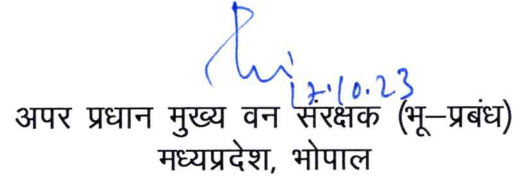 17.10.23
अपर प्रधान मुख्य वन संरक्षक (भू–प्रबंध)
मध्यप्रदेश, भोपाल